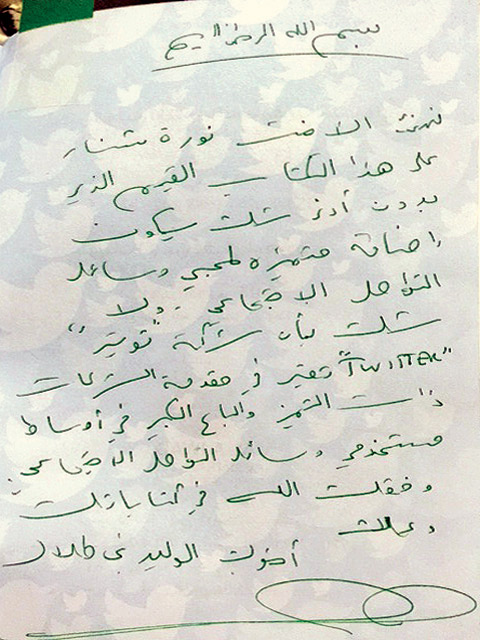 بسم الله الرحمن الرحيم
نهنئ الاخت نورة شنار
على هذا الكتاب القيم الذي
بدون أدنى شك سيكون
إضافة متميزة لمحبي وسائل
التواصل الاجتماعي .. ولا
شك بأن شركة "تويتر"
"TWITTER" تعتبر في مقدمة الشركات
ذات التميز والباع الكبير في أوساط
مستخدمي وسائل التواصل الاجتماعي.
وفقك الله في كتاباتك
وعملك
أخوك الوليد بن طلال